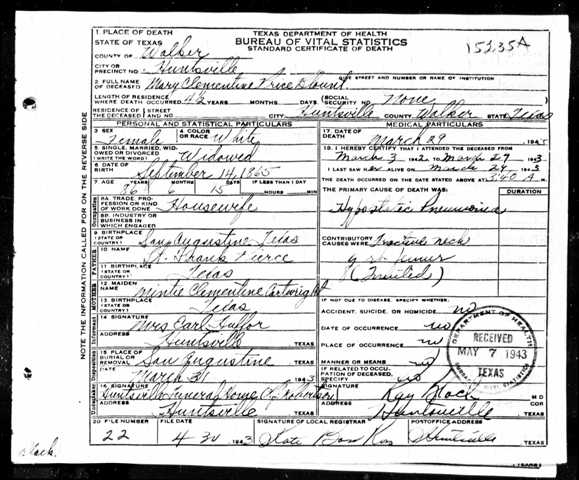 NOTE THE INFORMATION CALLED FOR ON THE REVERSE SIDE
TEXAS DEPARTMENT OF HEALTH
BUREAU OF VITAL STATISTICS
STANDARD CERTIFICATE OF DEATH
15235A
1 PLACE OF DEATH
STATE OF TEXAS
COUNTY OF Walker
CITY OR PRECINCT NO. Huntsville
GIVE STREET AND NUMBER OR NAME OF INSTITUTION
2 FULL NAME OF DECEASED Mary Clementine Price Blount
LENGTH OF RESIDENCE WHERE DEATH OCCURRED 42 YEARS MONTHS DAYS SOCIAL SECURITY NO. None
RESIDENCE OF THE DECEASED STREET AND NO. CITY Huntsville COUNTY Walker STATE Texas
PERSONAL AND STATISTICAL PARTICULARS
3 SEX Female
4 COLOR OR RACE White
5 SINGLE, MARRIED, WIDOWED OR DIVORCED (WRITE THE WORD) Widowed
6 DATE OF BIRTH September 14, 1865
7 AGE YEARS MONTHS 15 DAYS IF LESS THAN 1 DAY HOURS MIN
8A. TRADE, PROFESSION OR KIND OF WORK DONE Housewife
8B. INDUSTRY OR BUSINESS IN WHICH ENGAGED
9 BIRTHPLACE (STATE OR COUNTY) San Augustine, Texas
FATHER
10 NAME Frank
11 BIRTHPLACE (STATE OR COUNTY) Texas
MOTHER
12 MAIDEN NAME Clementine Cartwright
13 BIRTHPLACE (STATE OR COUNTY) Texas
14 SIGNATURE Mrs Earl
ADDRESS Huntsville TEXAS
15 PLACE OF BURIAL OR REMOVAL San Augustine TEXAS
DATE March 31 1943
16 SIGNATURE Huntsville Funeral Home Robertson
ADDRESS Huntsville TEXAS
MEDICAL PARTICULARS
17 DATE OF DEATH March 29
18. I HEREBY CERTIFY THAT I ATTENDED THE DECEASED FROM
March 3 1942 TO March 29 1943
I LAST SAW ALIVE ON March 29 1943
THE DEATH OCCURRED ON THE DATE STATED ABOVE AT 5:40 A. M.
THE PRIMARY CAUSE OF DEATH WAS: DURATION
Hypostatic Pneumonia
CONTRIBUTORY CAUSES WERE: neck
IF NOT DUE TO DISEASE, SPECIFY WHETHER:
ACCIDENT, SUICIDE, OR HOMICIDE no
DATE OF OCCURRENCE no
PLACE OF OCCURRENCE no
MANNER OR MEANS no
IF RELATED TO OCCUPATION OF DECEASED, SPECIFY no
SIGNATURE M D
ADDRESS Huntsville TEXAS
DEPARTMENT OF HEALTH
RECEIVED
MAY 7 1943
TEXAS
BUREAU OF VITAL STATISTICS
20 FILE NUMBER 22
FILE DATE 4 30 1943
SIGNATURE OF LOCAL REGISTRAR Kate
POSTOFFICE ADDRESS Huntsville TEXAS